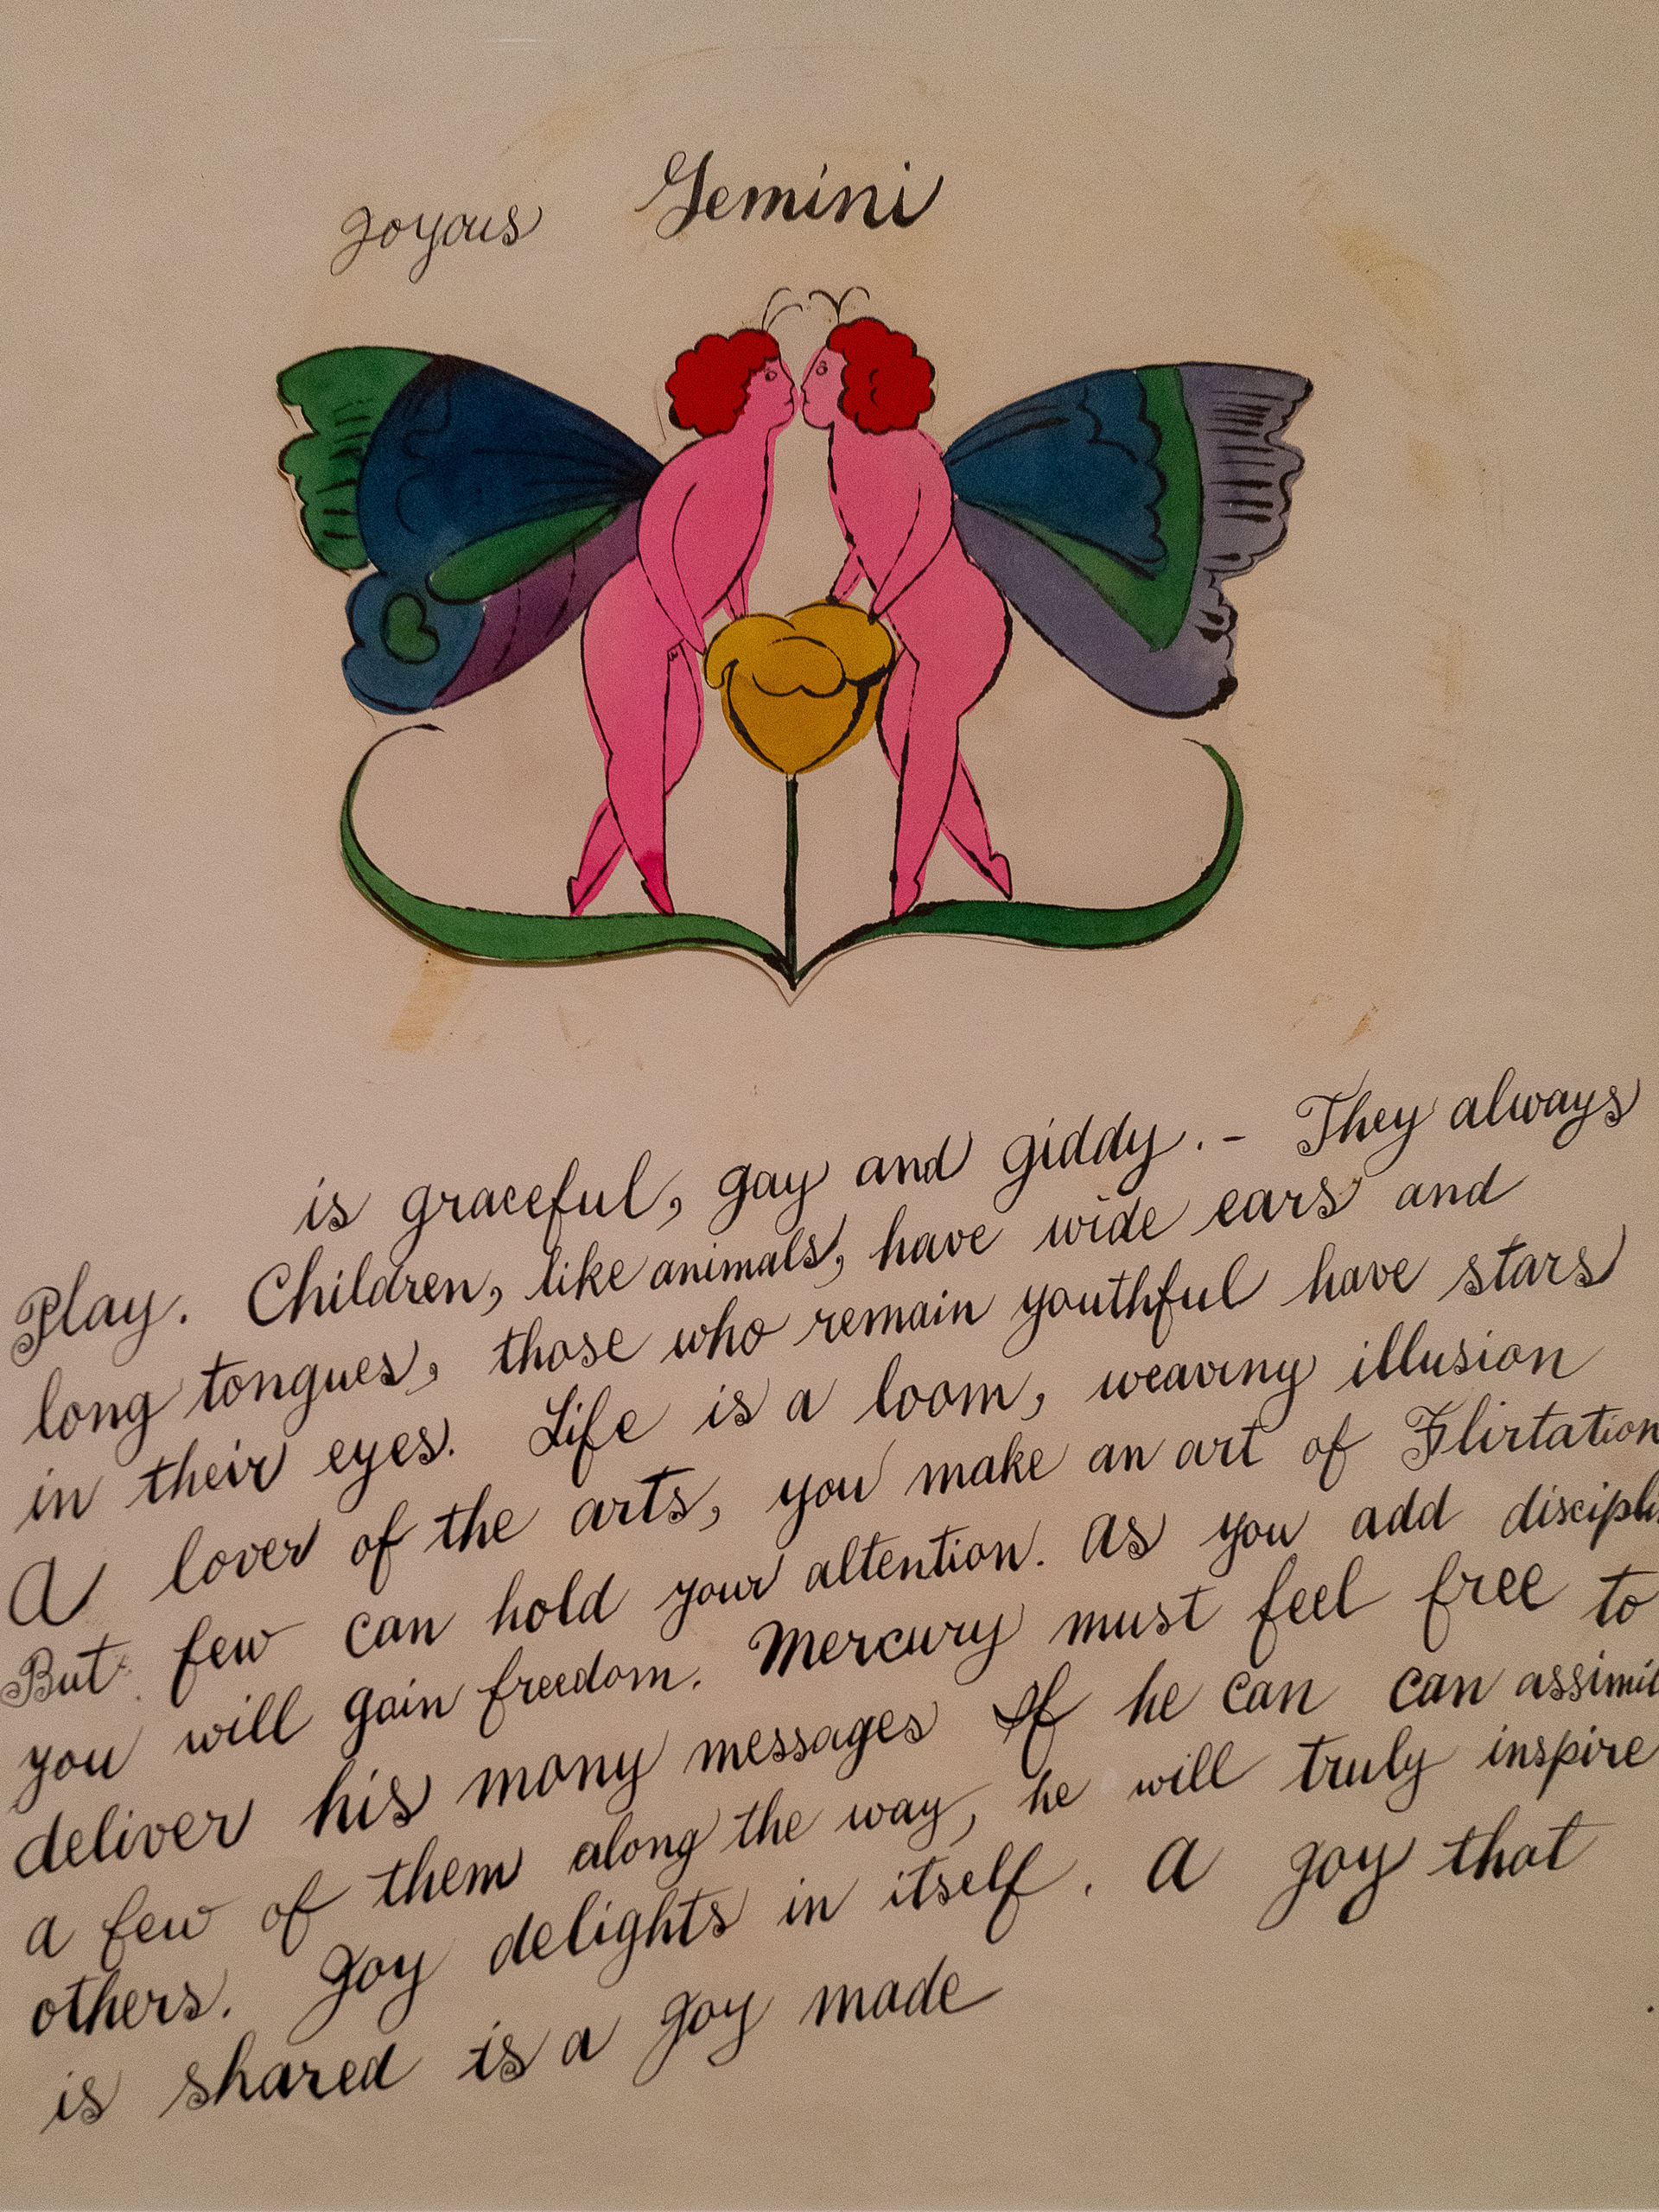 Joyous Gemini
is graceful, gay and giddy. - They always
Play. Children, like animals, have wide ears and
long tongues, those who remain youthful have stars
in their eyes. Life is a loom, weaving illusion
A lover of the arts, you make an art of Flirtation
But few can hold your attention. As you add discipli
you will gain freedom. Mercury must feel free to
deliver his many messages If he can can assimil
a few of them along the way, he will truly inspire
others. Joy delights in itself. A joy that
is shared is a joy made